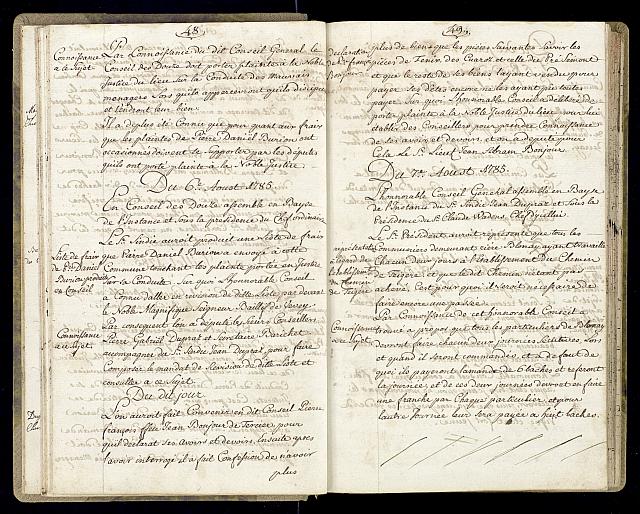 48.
Connoissance
a ce Sujet
Par Connoissance du dit Conseil General le
Conseil des Douze doit porter plainte à la Noble
Justice du lieu sur la Conduite des mauvais
menagers Lors qu'ils apperceveront qu'ils dissipent
et vendront leur bien.
Il a deplus été Connu que pour quant aux fraix
que les plaintes de Pierre Daniel Burion ont
occasionnés doivent se supporter par les députés
qu'ils ont porté plainte à la Noble Justice.
Du 6e. Aoust 1785.
En Conseil des Douze assemblé en Bayse
de l'Instance et sous la presidence du Chef ordinaire
Liste de fraix
de Pre. Daniel
Burion produite
en Conseil
Le Sr. Sindic auroit produit une Liste de fraix
que Pierre Daniel Burion a envoyé à cette
Commune touchant les plaintes portées en Justice
Sur la Conduite. Sur quoi L'honnorable Conseil
a Connu d'aller en revision de ditte Liste par devant
le Noble Magnifique Seigneur Baillif de Vevey.
Connoissance
a ce Sujet
Par consequent l'on a deputé les Sieurs Conseillers
Pierre Gabriel Duprat et Secretaire
accompagné du Sr. Sindic Jean Duprat, pour faire
Composer le mandat de Revision de ditte Liste et
consulter a ce Sujet.
Du dit jour
L'on auroit fait Convenir en dit Conseil Pierre
françois ffeu Jean Bonjour de Tercier, pour
qu'il declarat ses Avoirs et devoirs, Ensuite apres
l'avoir interrogé il a fait Confession de n'avoir
plus
49.
declaration
Bonjour
plus de biens que les pièces Suivantes Savoir les
pièces de Fenis, des Cuaroz et celle du Pré Semont
et que le reste de ses biens l'ayant vendue pour
payer ses dêtes encore ne les ayant pû toutes
payer. Sur quoi L'honnorable Conseil a délibéré de
porter plainte à la Noble Justice du lieu pour lui
établir des Conseillers pour prendre Connoissance
de ses avoirs et devoirs, et on a deputé pour
Cela Le Sr. Lieut. Jean Abram Bonjour
Du 7e. Aoust 1785.
L'honnorable Conseil General assemblé en Bayse
de l'Instance du Sr. Sindic Jean Duprat et sous la
Présidence du Sr. Claude
à l'égard de
l'établissement
du Chemin
de Teigère
Le Sr. Président auroit représenté que tous les
Communiers demeurant riere Blonay ayant travaillé
Chacun deux jours à l'établissement du Chemin
de Teigère, et que le dit Chemin n'etant pas
achevé, C'est pour quoi il seroit necessaire de
faire encore une passée
Connoissance
a ce Sujet
Par Connoissance de cet honnorable Conseil a
trouvé a propos que tous les particuliers de Blonay
devront faire chacun deux journées Ecutieres Lors
et quand il seront commandés, et a de faut de
quoi ils payeront l'amande de baches et referont
la journée, et de ces deux journées devront en faire
une franche par Chaque particulier, et pour
l'autre Journée leur sera payée à huit baches.